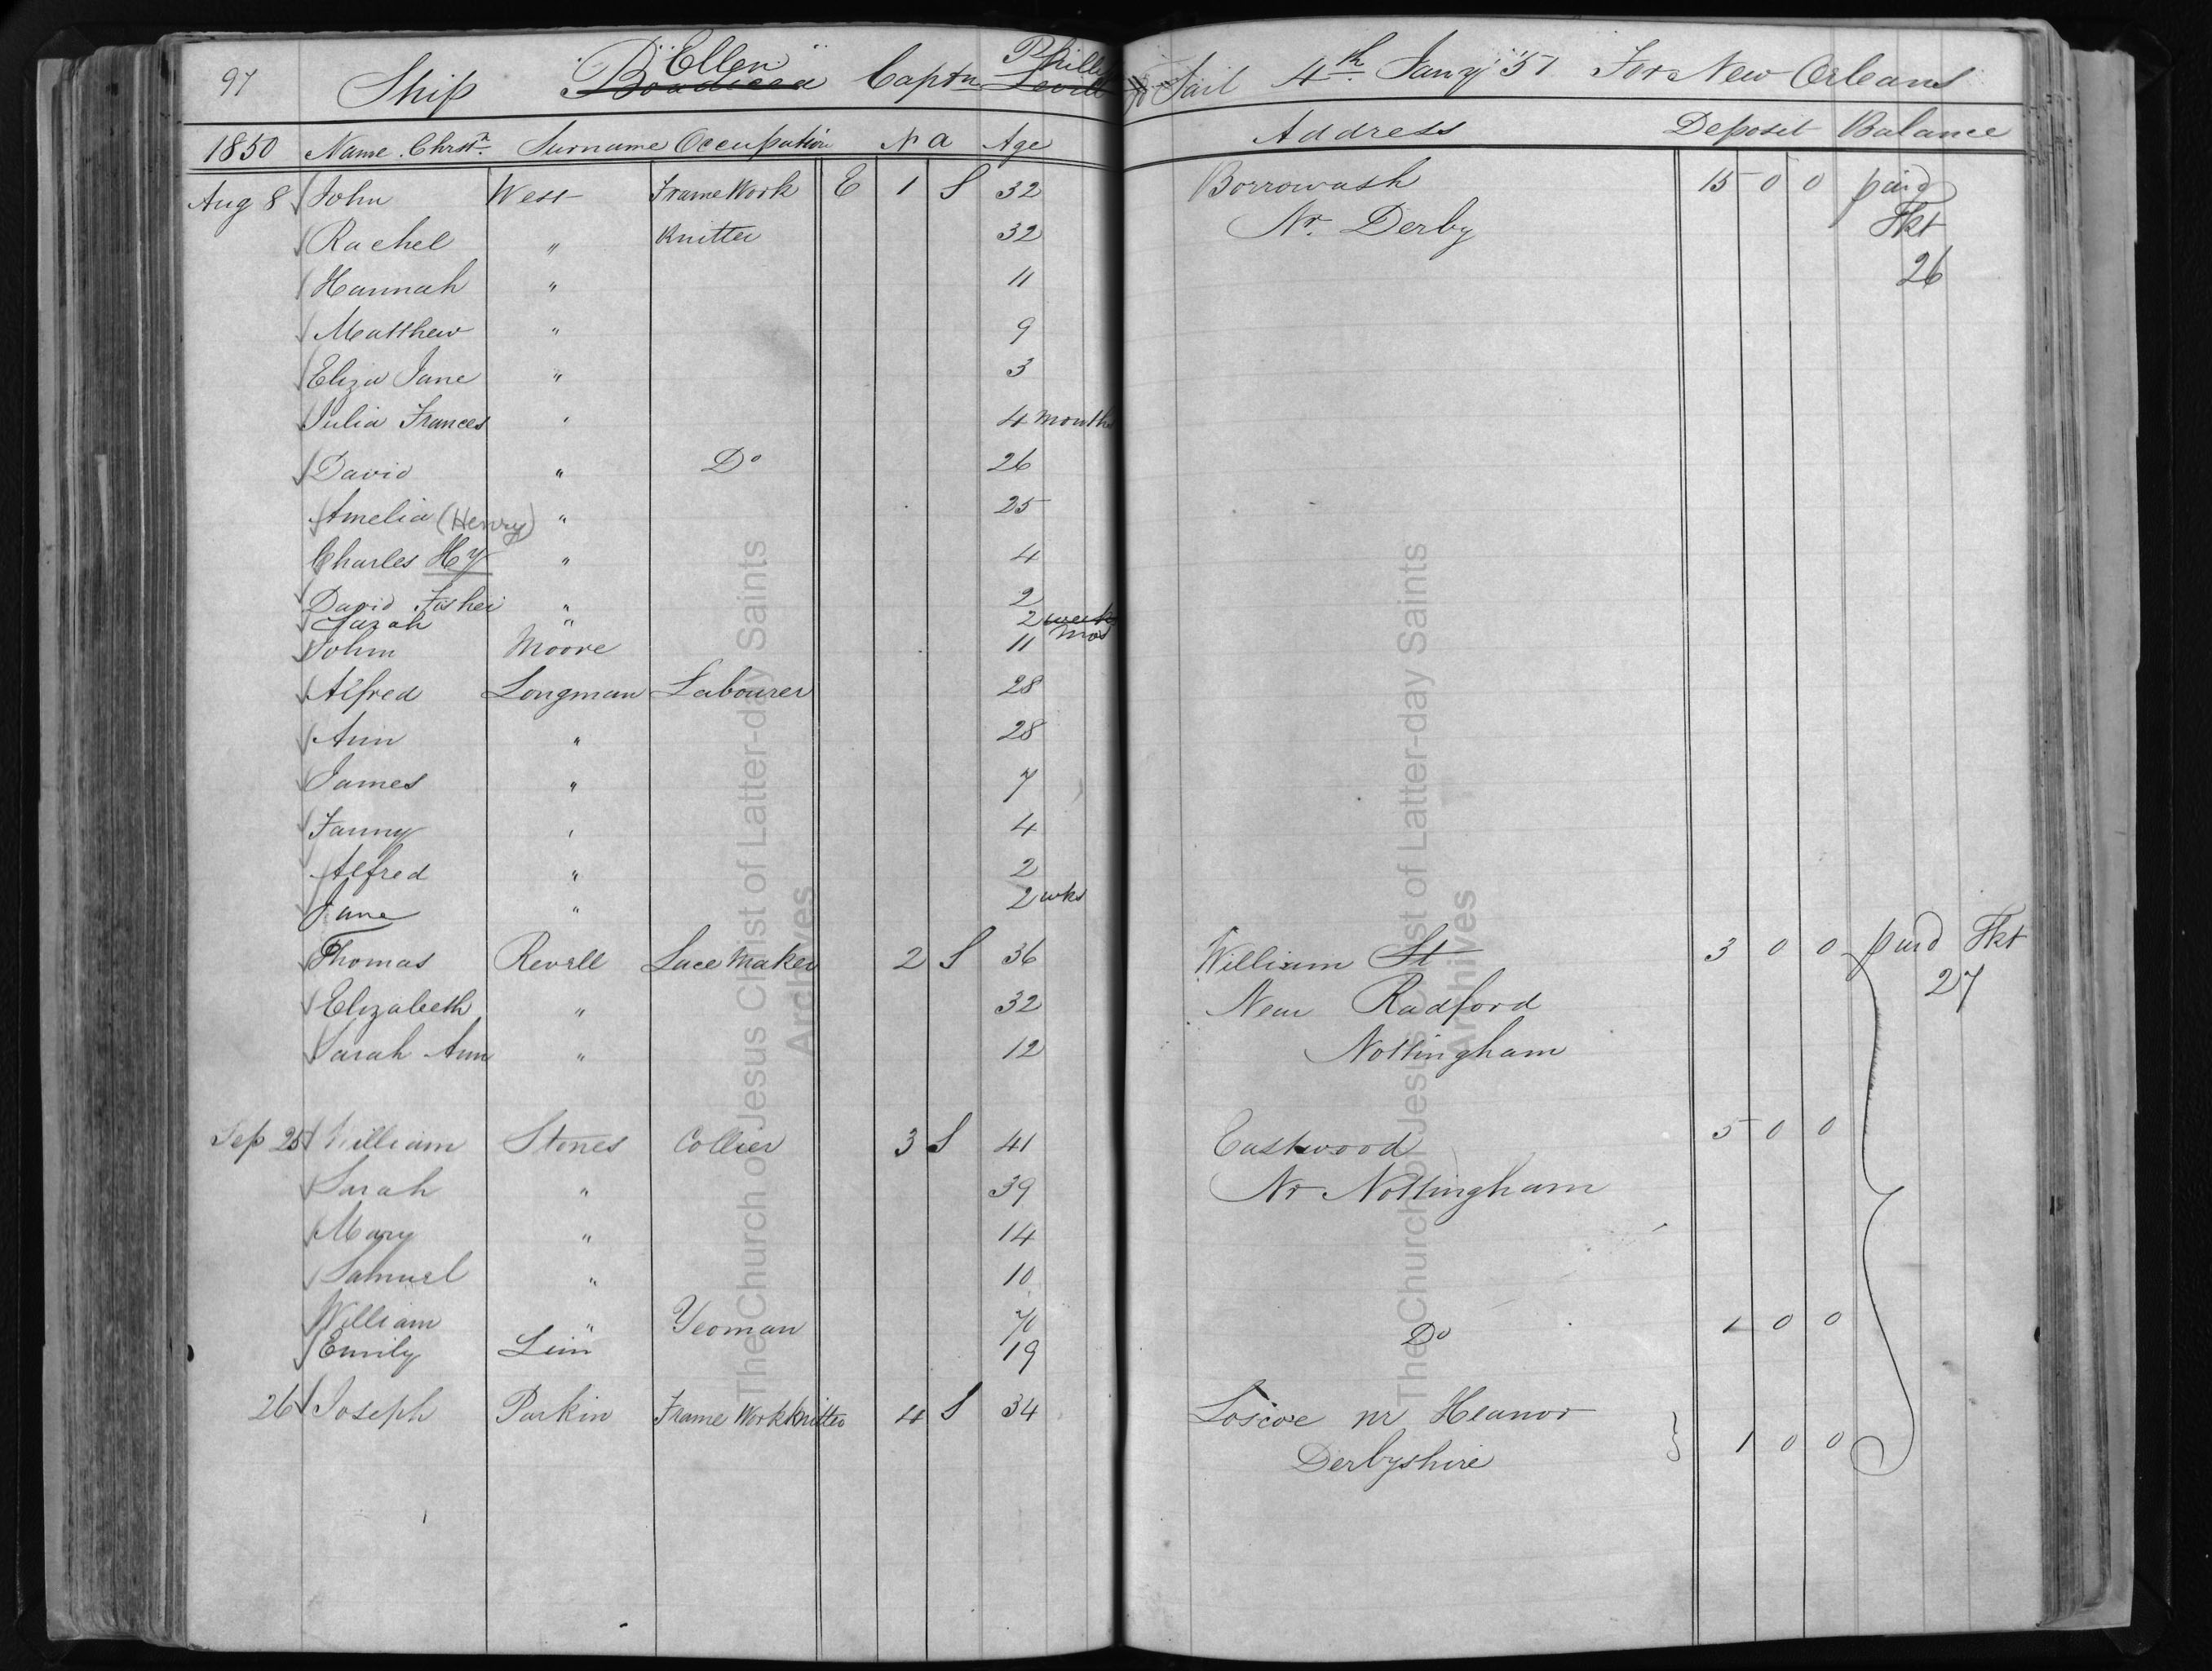 97 Ship "Ellen" Boadicea Captn Phillips Lovett To Sail 4th Jany '51 For New Orleans
1850 Name Chrstn. Surname Occupation N a Age Address Deposit Balance
Aug 8 John West Frame Work E 1 S 32 Borrowash 15 0 0 paid
Rachel " Knitter 32 Nr. Derby Tkt
Hannah " 11 26
Matthew " 9
Eliza Jane " 3
Julia Frances " 4 months
David " Do 26
Amelia (Henry) " 25
Charles Hy " 4
David Fisher " 2
Sarah " 2 weeks mos
John Moore 11
Alfred Longman Labourer 28
Ann " 28
James " 7
Fanny " 4
Alfred " 2
Jane " 2 wks
Thomas Revell Lace Maker 2 S 36 William St 3 0 0 paid Tkt
Elizabeth " 32 New Radford 27
Sarah Ann " 12 Nottingham
Sep 25 William Stones Collier 3 S 41 Eastwood 5 0 0
Sarah " 39 Nr Nottingham
Mary " 14
Samuel " 10
William " Yeoman 70 Do 1 0 0
Emily Lim 19
26 Joseph Parkin Frame Work Knitter 4 S 34 Loscoe nr Heanor
Derbyshire } 1 0 0
The Church of Jesus Christ of Latter-day Saints
Archives
The Church of Jesus Christ of Latter-day Saints
Archives